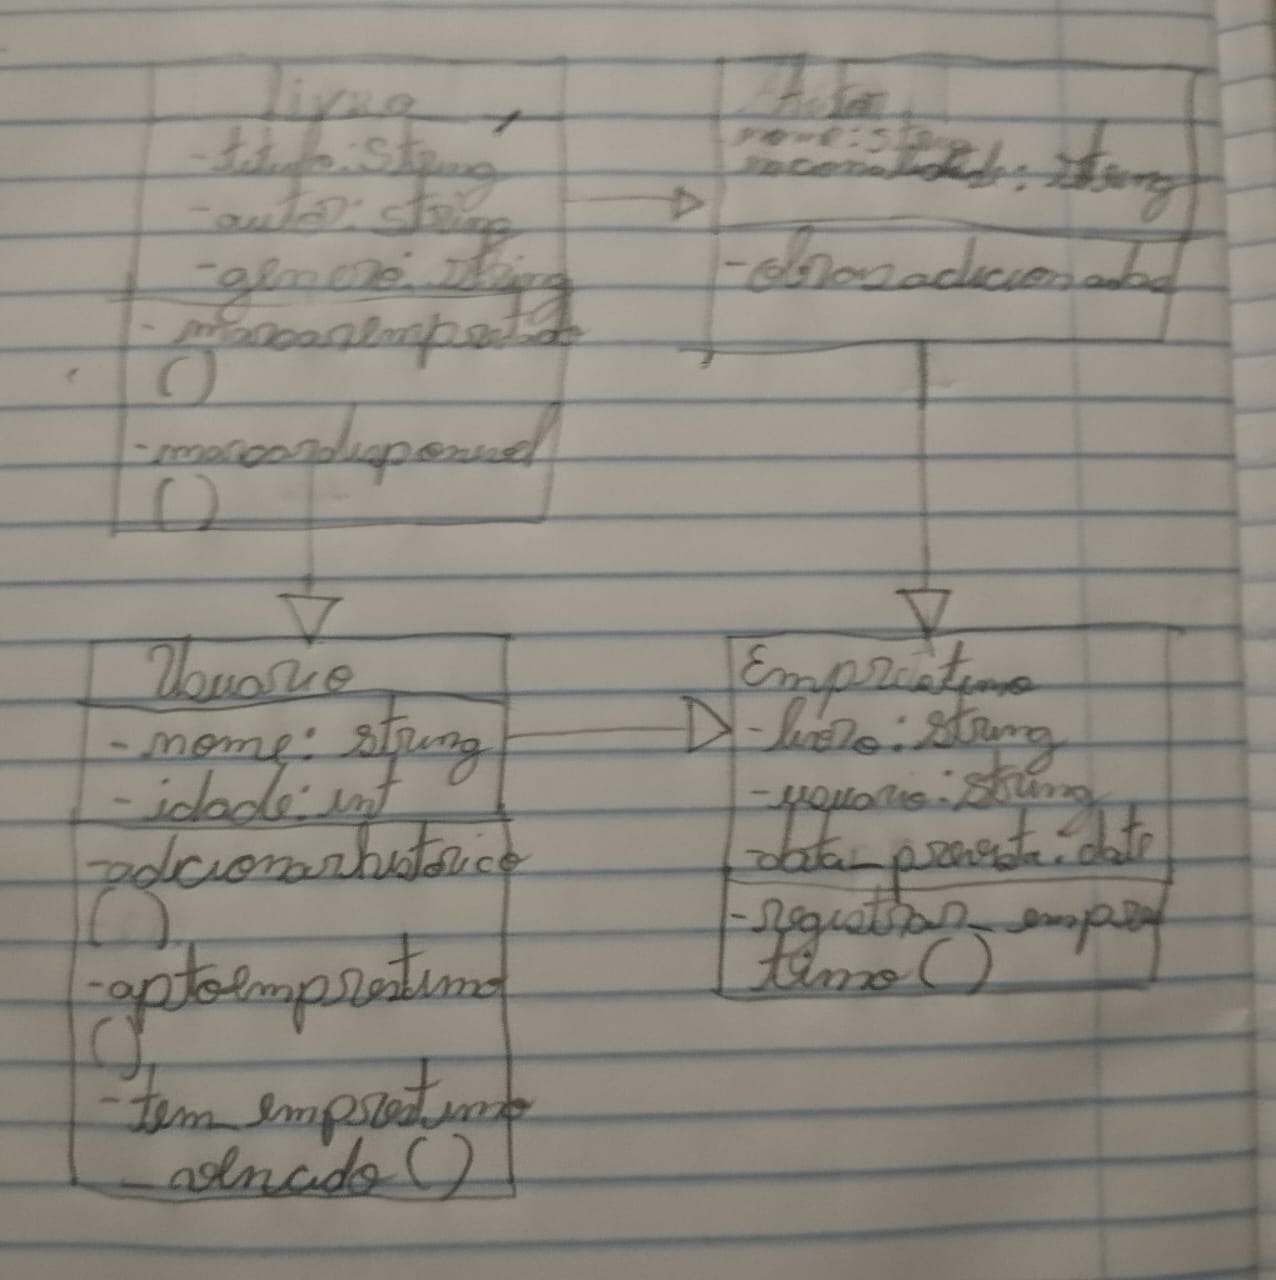 Livro
-titulo: String
-autor: string
-genero: string
- marcaremprestado
()
-marcardisponivel
()
Autor
nome: string
nacionalidade: string
-obrasadicionadas
Usuario
-nome: string
-idade: int
-adicionarhistorico
()
-aptoemprestimo
()
-tem_emprestimo
Emprestimo
-livro: string
-usuario: string
-data_prevista: date
-registrar_empres
timo()